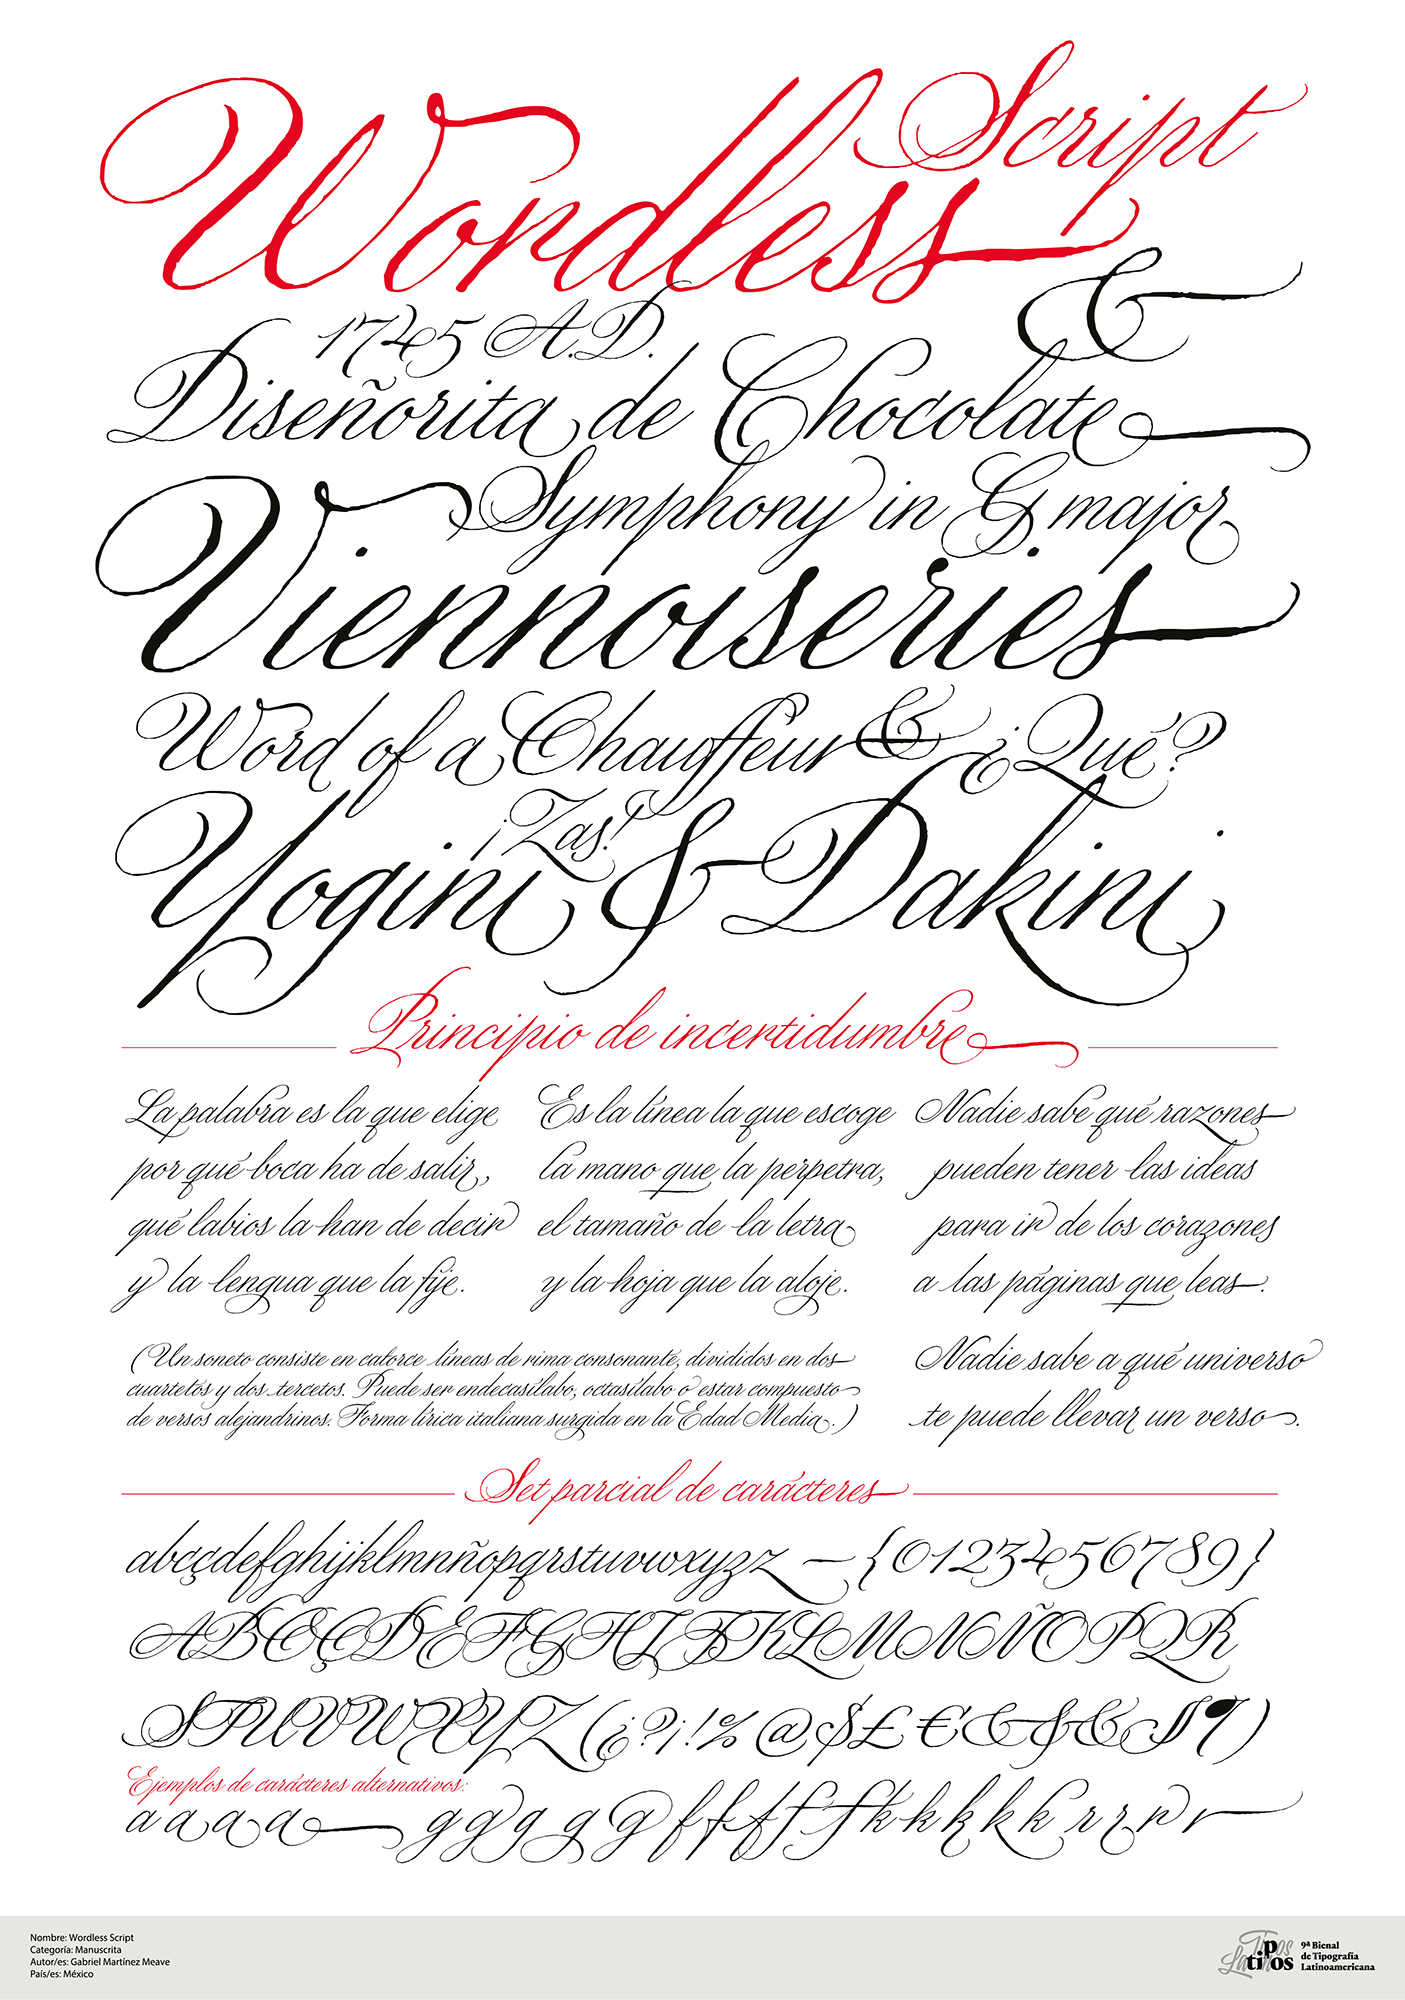 Wordless Script
&
1745 A.D.
Diseñorita de Chocolate
Symphony in G major
Viennoiseries
Word of a Chauffeur & ¿Qué?
¡Zas!
Yogini & Dakini
Principio de incertidumbre
La palabra es la que elige
por qué boca ha de salir,
qué labios la han de decir
y la lengua que la fije.
Es la línea la que escoge
la mano que la perpetra,
el tamaño de la letra
y la hoja que la aloje.
Nadie sabe qué razones
pueden tener las ideas
para ir de los corazones
a las páginas que leas.
Nadie sabe a qué universo
te puede llevar un verso.
(Un soneto consiste en catorce líneas de rima consonante, divididos en dos
cuartetos y dos tercetos. Puede ser endecasílabo, octasílabo o estar compuesto
de versos alejandrinos. Forma lírica italiana surgida en la Edad Media.)
Set parcial de carácteres
abcçdefghijklmnñopqrstuvwxyzz – {0123456789}
ABCÇDEFGHIJKLMNÑOPQR
STUVWXYZ (¿?¡!%@$£€&&&§¶)
Ejemplos de carácteres alternativos:
a a a a g g g g g f f f f f k k k k k r r r r
Nombre: Wordless Script
Categoría: Manuscrita
Autor/es: Gabriel Martínez Meave
País/es: México
Tipos Latinos
9ª Bienal
de Tipografía
Latinoamericana